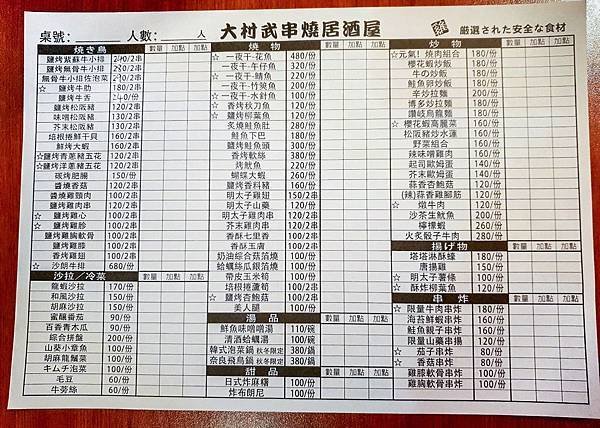 桌號: 人數: 人 大村武串燒居酒屋 厳選された安全な食材
焼き鳥 數量 加點 加點
鹽烤紫蘇牛小排 240/2串
鹽烤無骨牛小排 240/2串
無骨牛小排佐泡菜 240/2串
☆ 鹽烤牛肋 180/2串
鹽烤牛舌 240/份
鹽烤松阪豬 120/2串
味噌松阪豬 130/2串
芥末松阪豬 130/2串
培根捲鮮干貝 160/2串
鮮烤大蝦 160/2串
☆鹽烤青蔥豬五花 120/2串
☆鹽烤洋蔥豬五花 120/2串
碳烤肥腸 150/份
醬燒香菇 100/2串
醬燒雞頸肉 100/2串
鹽烤雞肉串 100/2串
☆ 鹽烤雞心 100/2串
☆ 鹽烤雞胗 100/2串
鹽烤雞胸軟骨 100/2串
鹽烤雞膝 100/2串
香烤雞翅 100/2串
☆ 沙朗牛排 680/份
沙拉／冷菜 數量 加點 加點
龍蝦沙拉 170/份
和風沙拉 150/份
胡麻沙拉 150/份
蜜釀番茄 90/份
百香青木瓜 90/份
綜合拼盤 200/份
山葵小章魚 100/份
胡麻龍鬚菜 100/份
キムチ泡菜 100/份
毛豆 60/份
牛蒡絲 60/份
燒物 數量 加點 加點
☆ 一夜干-花魚 480/份
一夜干-午仔魚 320/份
☆ 一夜干-鯖魚 220/份
一夜干-竹筴魚 200/份
☆ 一夜干-水針魚 100/份
☆ 香烤秋刀魚 120/份
☆ 鹽烤柳葉魚 120/份
炙燒鮭魚肚 280/份
鮭魚下巴 180/份
鹽烤鮭魚頭 300/份
香烤軟絲 380/份
烤魷魚 220/份
蝴蝶大蝦 260/份
鹽烤香料豬 160/份
明太子雞翅 150/2串
明太子山藥 120/份
明太子雞肉串 120/2串
芥末雞肉串 120/2串
香酥七里香 100/2串
香酥玉膚 100/2串
奶油綜合菇箔燒 100/份
蛤蠣絲瓜銀箔燒 160/份
帶皮玉米筍 100/份
培根捲蘆筍 100/2串
☆ 鹽烤杏鮑菇 100/2串
美人腿 100/份
湯品 數量 加點 加點
鮮魚味噌噌湯 110/碗
清酒蛤蠣湯 100/碗
韓式泡菜鍋 秋冬限定 380/鍋
奈良飛鳥鍋 秋冬限定 380/鍋
甜品 數量 加點 加點
日式炸麻糬 100/份
炸布朗尼 100/份
炒物 數量 加點 加點
☆ 元氣！燒肉組合 180/份
櫻花蝦炒飯 180/份
牛の炒飯 180/份
鮭魚卵炒飯 180/份
辛炒拉麵 180/份
博多炒拉麵 180/份
讚岐烏龍麵 180/份
☆ 櫻花蝦高麗菜 160/份
松阪豬炒水蓮 160/份
野菜組合 120/份
辣味噌雞肉 120/份
起司歐姆蛋 140/份
芥末歐姆蛋 140/份
蒜香杏鮑菇 120/份
(辣)蒜香雞腳筋 120/份
☆ 燉牛肉 120/份
沙茶生魷魚 200/份
檸檬蝦 260/份
火炙骰子牛肉 280/份
揚げ物 數量 加點 加點
塔塔淋酥蠔 180/份
唐揚雞 150/份
☆ 明太子薯條 100/份
☆ 酥炸柳葉魚 120/份
串炸 數量 加點 加點
☆ 限量牛肉串炸 180/份
海苔鮮蝦串炸 180/份
鮭魚親子串炸 100/份
限量山藥串揚 120/份
☆ 茄子串炸 80/份
☆ 香菇串炸 80/份
雞膝軟骨串炸 100/份
雞胸軟骨串炸 100/份